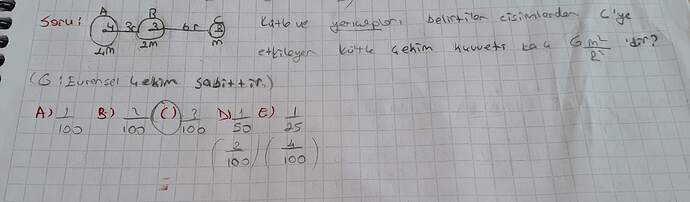 A B C
Soru: 4r 3r 3r 6r 2r Kütle ve yarıçapları belirtilen cisimlerden C'ye
4m 2m m etkileyen kütle çekim kuvveti kaç G m²/r² 'dir?
(G: Evrensel çekim sabittir.)
A) 1/100 B) 2/100 C) 3/100 D) 1/50 E) 1/25
(2/100) (4/100)